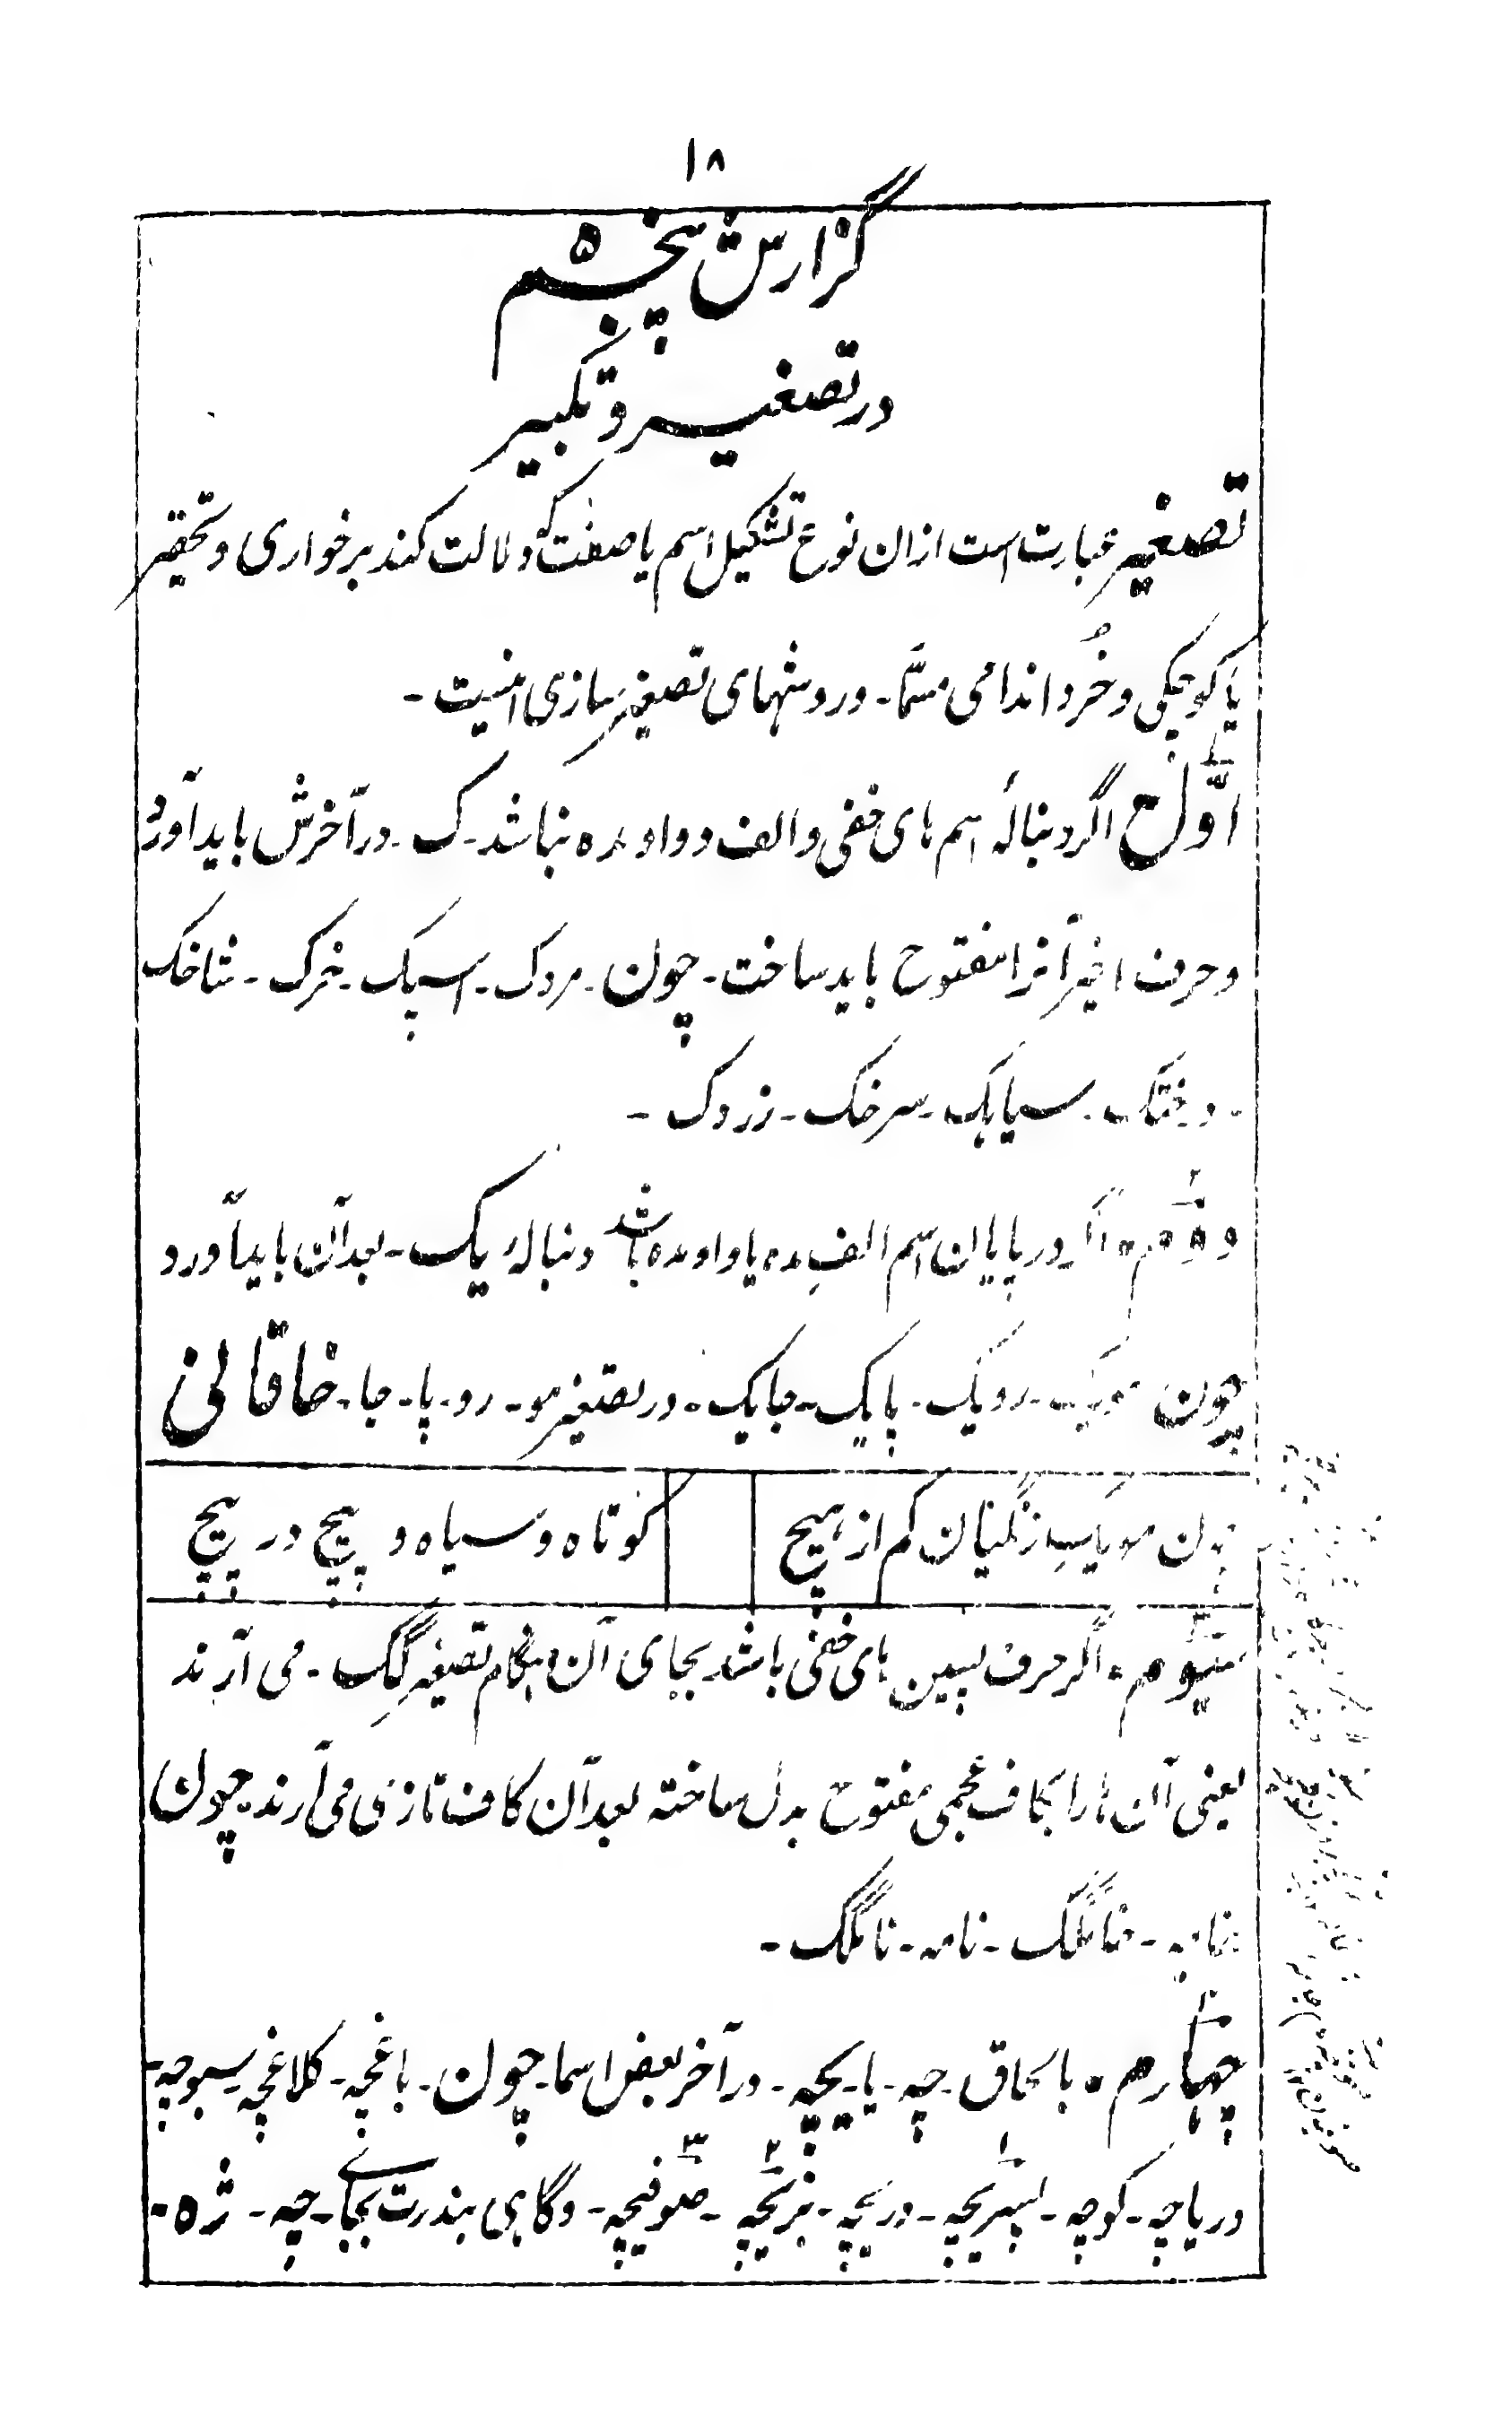 ۱۸
گزارش پنجم ۵
در تصغیر و تکبیر
تصغیر عبارت است ازان نوع تشکیل اسم یا صفت که دلالت کند بر خواری و تحقیر
یا کوچکی و خُرد اندامی مسمّا - و روشهای تصغیر سازی اینست -
اوّل اگر دنبالهٔ اسم های خفی و الف و واو مده نباشد - ک - در آخرش باید آورد
و حرف اخیر آنرا مفتوح باید ساخت - چون - مردک - اسپک - خرک - شاخک
- دختک - سیاهک - سرخک - زردک -
دوّم اگر در پایان اسم الفِ مده یا واو مده باشد دنباله یک - بعد آن باید آورد
چون مویک - رویک - پایک - جایک - در تصغیر مو - رو - پا - جا - خاقانی
کم از هیچ
کوتاه و سیاه و پیچ در پیچ
سیّوم اگر حرف پسین های خفی باشد بجای آن هنگام تصغیر گک - می آرند
یعنی آن ها را بکاف عجمی مفتوح بدل ساخته بعد آن کاف تازی می آرند چون
نامه - نامگک -
چهارم - بالحاق - چه - یا - یچه - در آخر بعض اسما - چون - باغچه - کلاغچه - سبوچه -
دریاچه - کوچه - پسریچه - دریچه - بزیچه - صوفیچه - و گاهی بندرت بجای - چه - ژه -